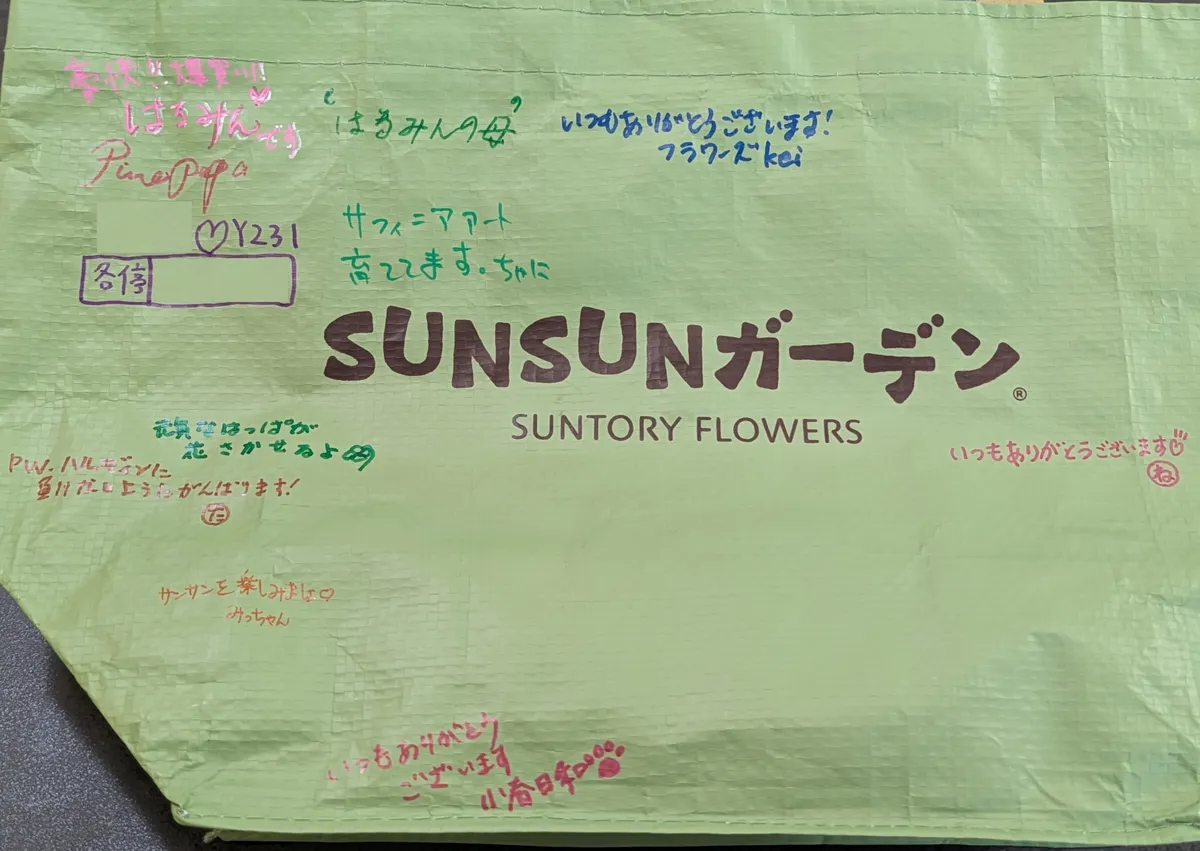 豪快!!爆笑!!!
はるみんです
Pinepapa
♡Y231
各停
"はるみんの母"
いつもありがとうございます!
フラワーズkei
サフィニアアート
育ててます。ちゃに
SUNSUNガーデン®
SUNTORY FLOWERS
元気なはっぱが
花さかせるよ
PW.ハルディンに
負けないようがんばります!
た
いつもありがとうございます
ね
サンサンを楽しみましょ♡
みっちゃん
いつもありがとう
ございます
小春日和